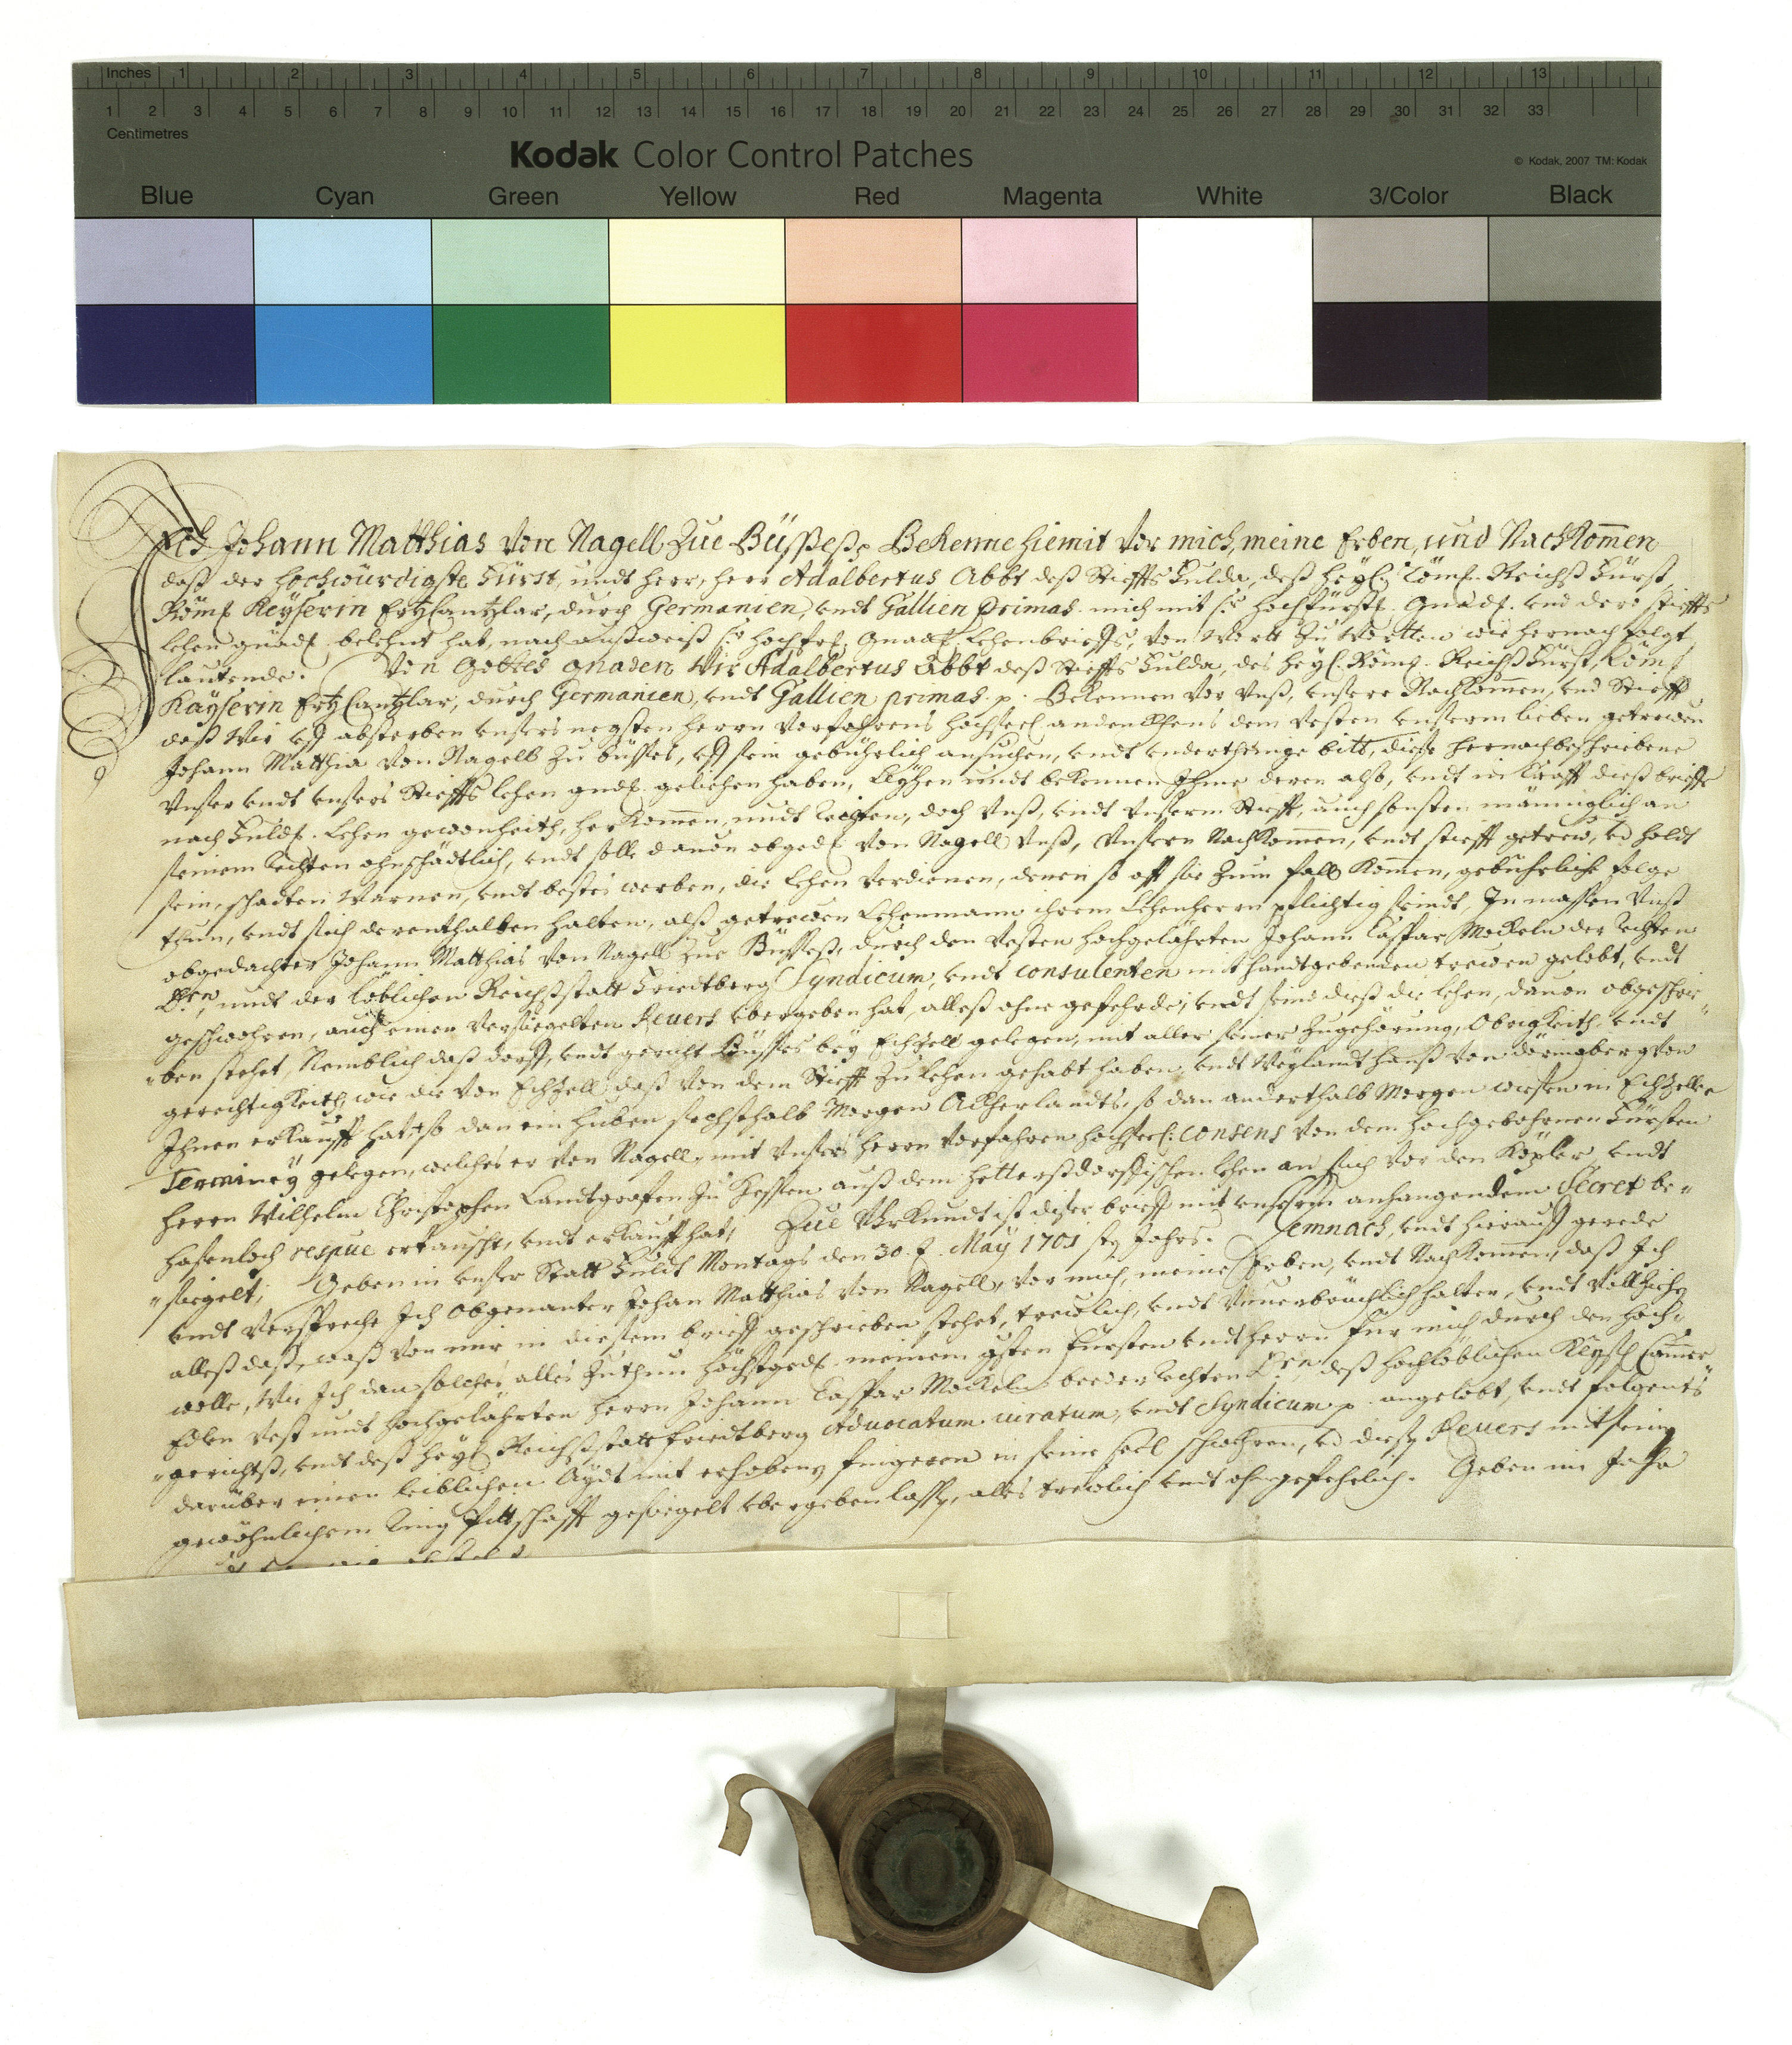 Inches 1 2 3 4 5 6 7 8 9 10 11 12 13
1 2 3 4 5 6 7 8 9 10 11 12 13 14 15 16 17 18 19 20 21 22 23 24 25 26 27 28 29 30 31 32 33
Centimetres
Kodak Color Control Patches
© Kodak, 2007 TM: Kodak
Blue Cyan Green Yellow Red Magenta White 3/Color Black
Ich Johann Matthias Von Nagell Zue Büsseß Bekenne hiemit Vor mich, meine Erben, und Nachkom̅en
daß der hochwürdigste Fürst, undt herr, herr Adalbertus Abbt deß Stieffts Fulda, deß heyl. Röm. Reichß Fürst,
Röm. Keyserin Ertzcantzlar, durch Germanien, undt Gallien Primas mich mit hochfürstl. Gnad. und dero stieffts
lehen gnäd. belehnt hat, nach außweiß Gnad. lehenbrieffs, von Wortt zu Wortten wie hernach folgt
lautende. Von Gottes gnaden Wir Adalbertus Abbt deß Stieffts Fulda, des heyl. Röm. Reichß Fürst, Röm.
Käyserin Ertzcantzlar, durch Germanien, undt Gallien primas p. Bekennen vor Unß, unsere Nachkommen, und Stiefft
daß Wir uff absterben unsers negsten herrn vorfahrens hochseel. andenckhens dem vesten unserm lieben getrewen
Johann Matthia von Nagell zu büsses, uff sein gebührlich ansuchen, undt underthenige bitt, diese hernachbeschriebene
Unser undt unsers Stieffts lehen gnd. geliehen haben, leyhen undt bekennen Ihme deren also, undt in krafft dieß brieffs
nach Fuld. lehen gewonheith, herkommen, undt rechten, doch Unß, undt unserm Stiefft, auch sonsten männiglich an
seinem rechten ohnschädtlich, undt solle davon obged. von Nagell Unß, Unsern Nachkommen, undt stiefft getrew, ud holdt
sein, schaden Warnen, undt bestes werben, die lehen verdienen, denen so offt sie zum fall kommen, gebührliche folge
thun, undt sich derenthalben halten, alß getrewen lehenmann ihrem lehenherrn pflichtig seindt, In massen Unß
obgedachter Johann Matthias von Nagell zue Büsseß, durch den vesten hochgelährten Johann Casspar Mockeln der rechten
undt der löblichen Reichßstatt Friedtberg Syndicum, undt consulenten mit handtgebenden trewen gelobt, undt
geschwohren, auch einen versiegelten Revers ubergeben hat, alleß ohne gefehrde; undt seind dieß die lehen, davon obgeschrie-
-ben stehet, Nemblich daß dorff, undt gericht Büsses bey Echzell gelegen, mit aller seiner zugehörung, Obrigkeith, undt
gerechtigkeith, wie die von Echzell daß von dem Stiefft zu lehen gehabt haben, undt weylandt hanß von döringberg von
Ihnen erkaufft hat, so dan ein huben sechsthalb Morgen Ackherlandts, so dan anderthalb Morgen wiesen in Echzeller
Terminey gelegen, welches er von Nagell mit unsers herrn vorfahren hochseel. Consens von dem hochgebohrnen Fürsten
herrn Wilhelm Christophen Landtgrafen zu Hessen auß dem hetterßdorffischen lehen an sich vor den undt
hasenloch respué ertauscht, undt erkaufft hat; Zue Uhrkundt ist dißer brieff mit unserm anhangendem Secret be-
-siegelt; Geben in unser Statt Fuldt Montags den 30. May 1701 Jahrs. Demnach, undt hierauff gerede
undt verspreche Ich Obgenanter Johan Matthias von Nagell, vor mich, meine Erben, undt Nachkommen, daß Ich
alleß daß, waß von mir in diesem brieff geschrieben stehet, trewlich, undt unverbrüchlich halten, undt vollziehen
wolle, Wie Ich dan solches alles zuthun höchstged. meinem gsten Fürsten undt herrn für mich durch den hoch-
Edlen vest undt hochgelährten herrn Johann Casspar Mockeln beeder rechten deß hochlöblichen Keys. Cammer
-gerichtß, undt deß heyl. Reichßstatt Friedtberg Advocatum iuratum, undt Syndicum p. angelobt, undt folgents
darüber einen leiblichen Aydt mit erhobenen fingeren in seine seel schwehren, ud diesen Revers mit seinem
gewöhnlichem Ring Pittschafft gesiegelt ubergeben lassen, alles trewlich undt ohngefehrlich. Geben im Jahr
wie obstehet